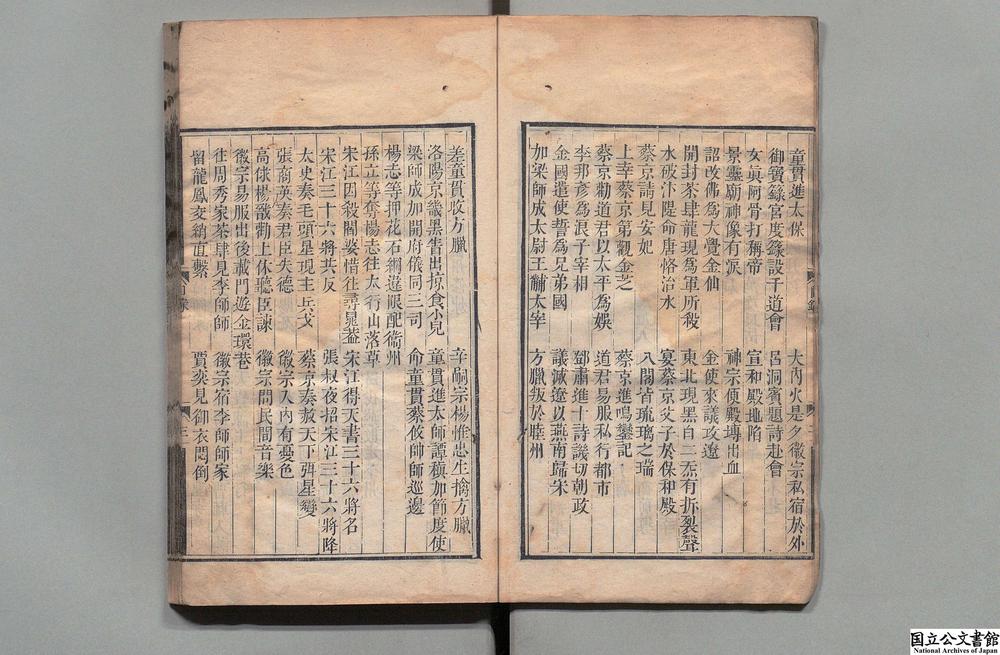 童貫進太保　大內火是夕徽宗私宿於外
御寶籙宮度籙設千道會　呂洞賓題詩赴會
女眞阿骨打稱帝　宣和殿地陷
景靈廟神像有淚　神宗便殿塼出血
詔改佛爲大覺金仙　金使來議攻遼
開封茶肆龍現爲軍所殺　東北現黑白二炁有拆裂聲
水破汴隄命唐恪治水　宴蔡京父子於保和殿
蔡京請見安妃　八閣皆琉璃之瑞
上幸蔡京第觀金芝　蔡京進鳴鑾記
蔡京勸道君以太平爲娛　道君易服私行都市
李邦彥爲浪子宰相　鄧肅進十詩議切朝政
金國遣使誓爲兄弟國　議滅遼以燕南歸宋
加梁師成太尉王黼太宰　方臘叛於睦州
差童貫收方臘　辛嗣宗楊惟忠生擒方臘
洛陽京畿黑眚出掠食小兒　童貫進太師譚稹加節度使
梁師成加開府儀同三司　命童貫蔡攸帥師巡邊
楊志等押花石綱違限配衞州
孫立等奪楊志往太行山落草
宋江因殺閻婆惜往尋晁蓋　宋江得天書三十六將名
宋江三十六將共反　張叔夜招宋江三十六將降
太史奏毛頭星現主兵戈　蔡京奏赦天下弭星變
張商英奏君臣失德　徽宗入內有憂色
高俅楊戩勸上休聽臣諫　徽宗問民間音樂
徽宗易服出後載門遊金環巷
往周秀家茶肆見李師師　徽宗宿李師師家
留龍鳳交綃直繫　賈奕見御衣悶倒
目錄
三
国立公文書館
National Archives of Japan